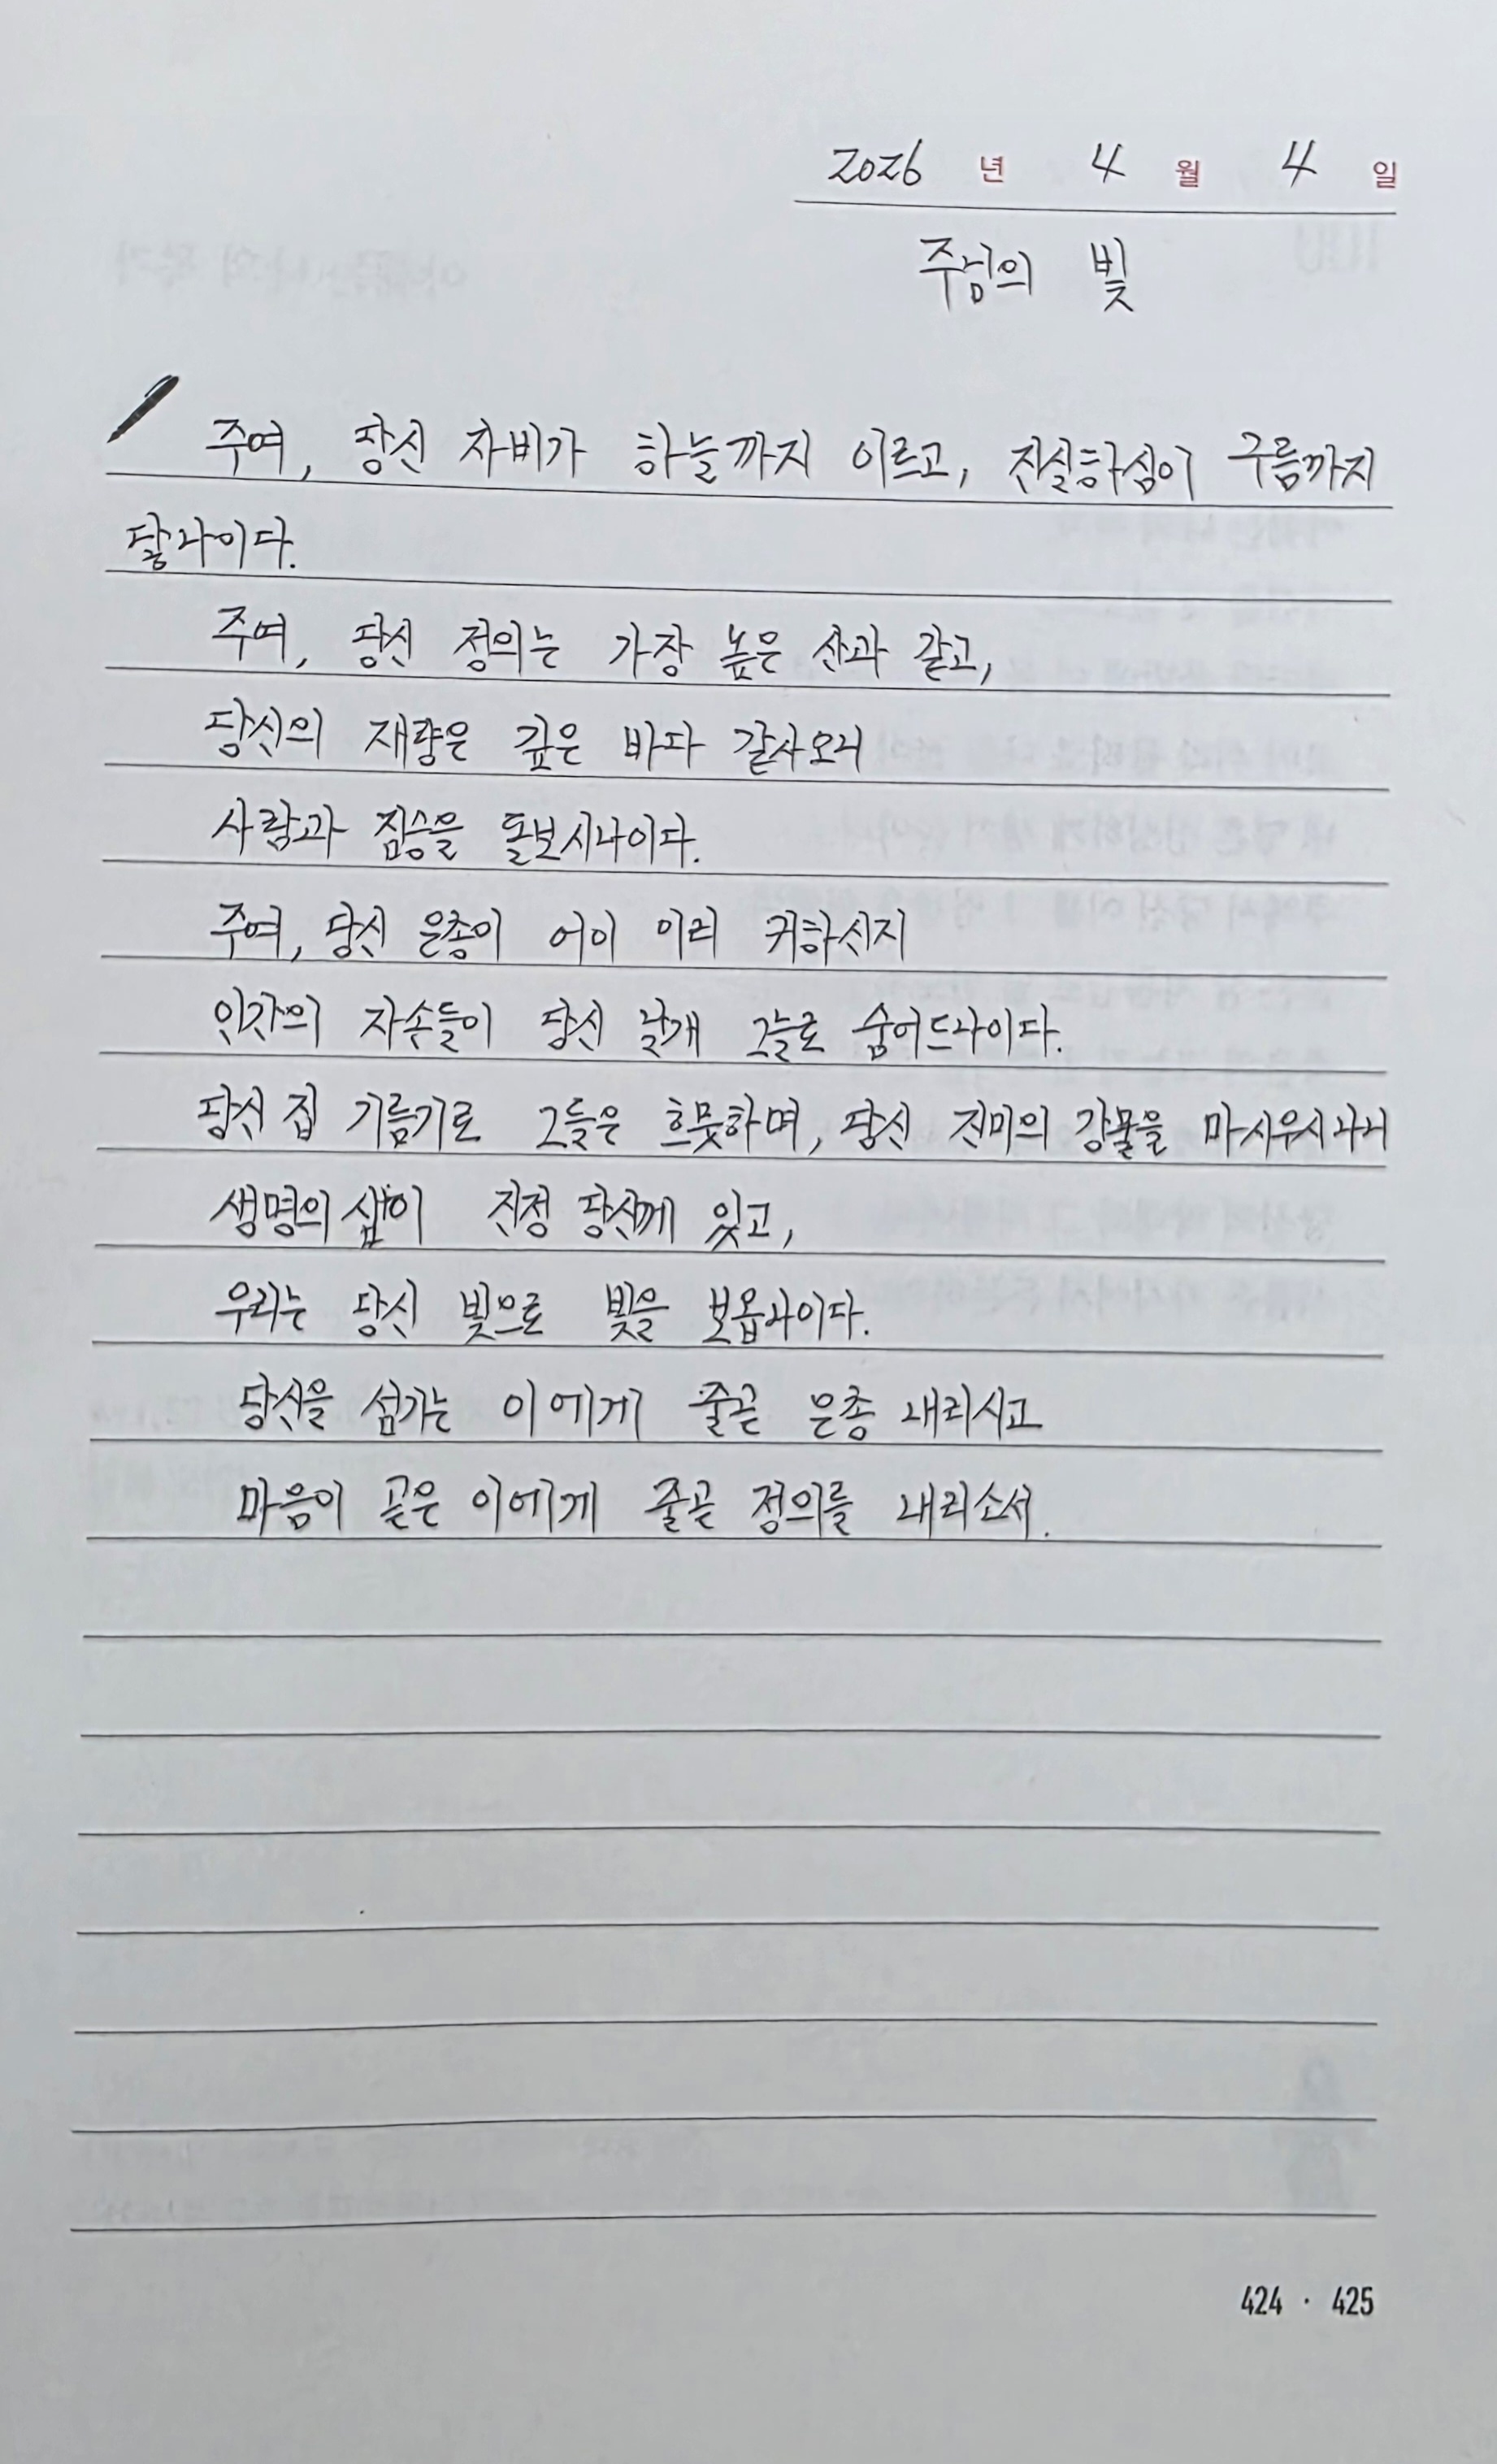 2026 년 4 월 4 일
주님의 빛
주여, 당신 자비가 하늘까지 이르고, 진실하심이 구름까지
닿나이다.
주여, 당신 정의는 가장 높은 산과 같고,
당신의 재량은 깊은 바다 같사오니
사람과 짐승을 돌보시나이다.
주여, 당신 은총이 어이 이리 귀하신지
인간의 자손들이 당신 날개 그늘로 숨어드나이다.
당신 집 기름기로 그들은 흐뭇하며, 당신 진미의 강물을 마시우시나니
생명의 샘이 진정 당신께 있고,
우리는 당신 빛으로 빛을 보옵나이다.
당신을 섬기는 이에게 줄곧 은총 내리시고
마음이 곧은 이에게 줄곧 정의를 내리소서.
424 · 425